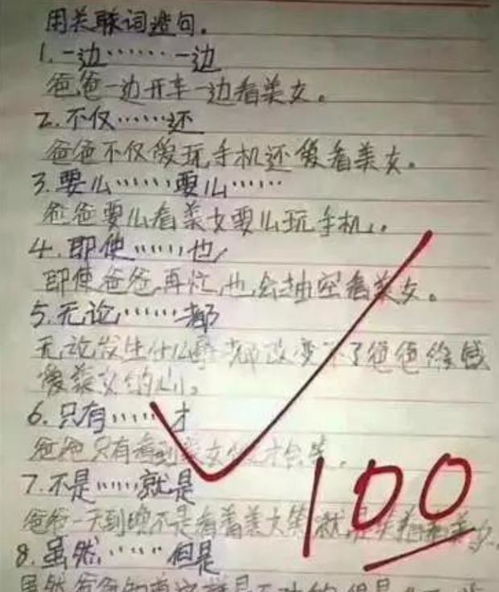 用关联词造句。
1.一边……一边
爸爸一边开车一边看美女。
2.不仅……还
爸爸不仅爱玩手机还爱看美女。
3.要么……要么……
爸爸要么看美女要么玩手机。
4.即使……也
即使爸爸再忙,也会抽空看美女。
5.无论……都
无论发生什么事都改变不了爸爸
美女的心。
6.只有……才
爸爸只有看到美女才会笑。
7.不是……就是
爸爸一天到晚不是看着美女笑就是
8.虽然……但是
虽然爸爸知道这样是不对的,但是
100